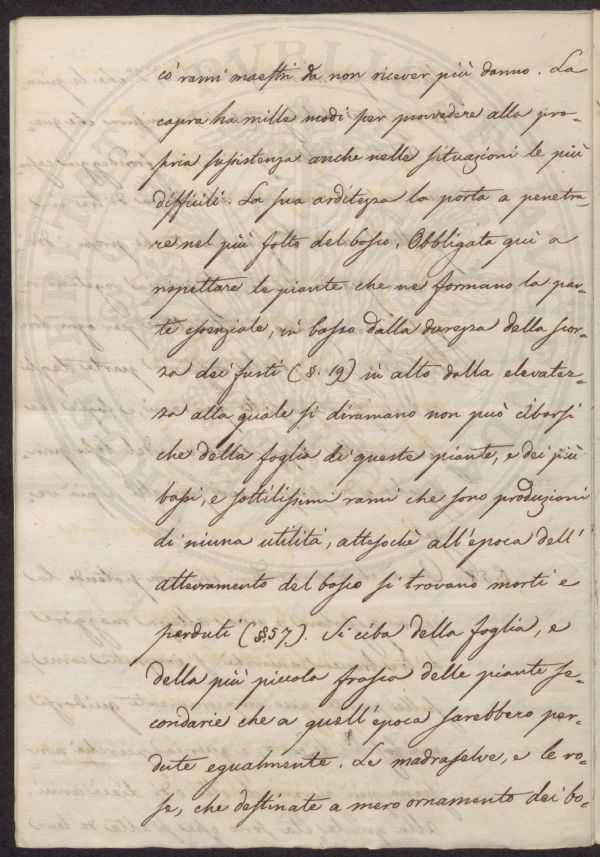 co' rami maestri da non ricever più danno. La
capra ha mille modi per provvedere alla pro-
pria sussistenza anche nelle situazioni le più
difficili. La sua arditezza la porta a penetra-
re nel più folto del bosco. Obbligata qui a
rispettare le piante che ne formano la par-
te essenziale, in basso dalla durezza della scor-
za dei fusti (§. 19) in alto dalla elevatez-
za alla quale si diramano non può cibarsi
che della foglia di queste piante, e dei più
bassi, e sottilissimi rami che sono produzioni
di niuna utilità, attesochè all'epoca dell'
atterramento del bosco si trovano morti e
perduti (§. 57). Si ciba della foglia, e
della più piccola frasca delle piante se-
condarie che a quell'epoca sarebbero per-
dute egualmente. Le madraselve, e le ro-
se, che destinate a mero ornamento dei bo-